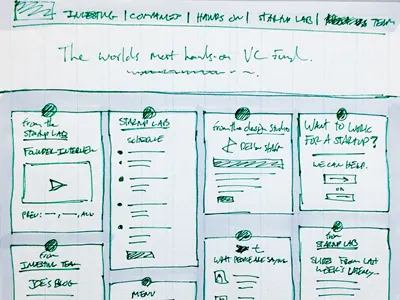 INVESTING | COMMUNITY | HANDS ON | STARTUP LAB | TEAM
The worlds most hands-on VC Fund.
from the
STARTUP LAB
FOUNDER INTERVIEW
PREV: —, —, ALL
STARTUP LAB
SCHEDULE
from the design studio
DESIGN STAFF
WANT TO WORK
FOR A STARTUP?
WE CAN HELP.
OR
from
INVESTING TEAM
JOE'S BLOG
MENU
WHAT PEOPLE ARE SAYING
from
STARTUP LAB
SLIDES FROM LAST
WEEK'S